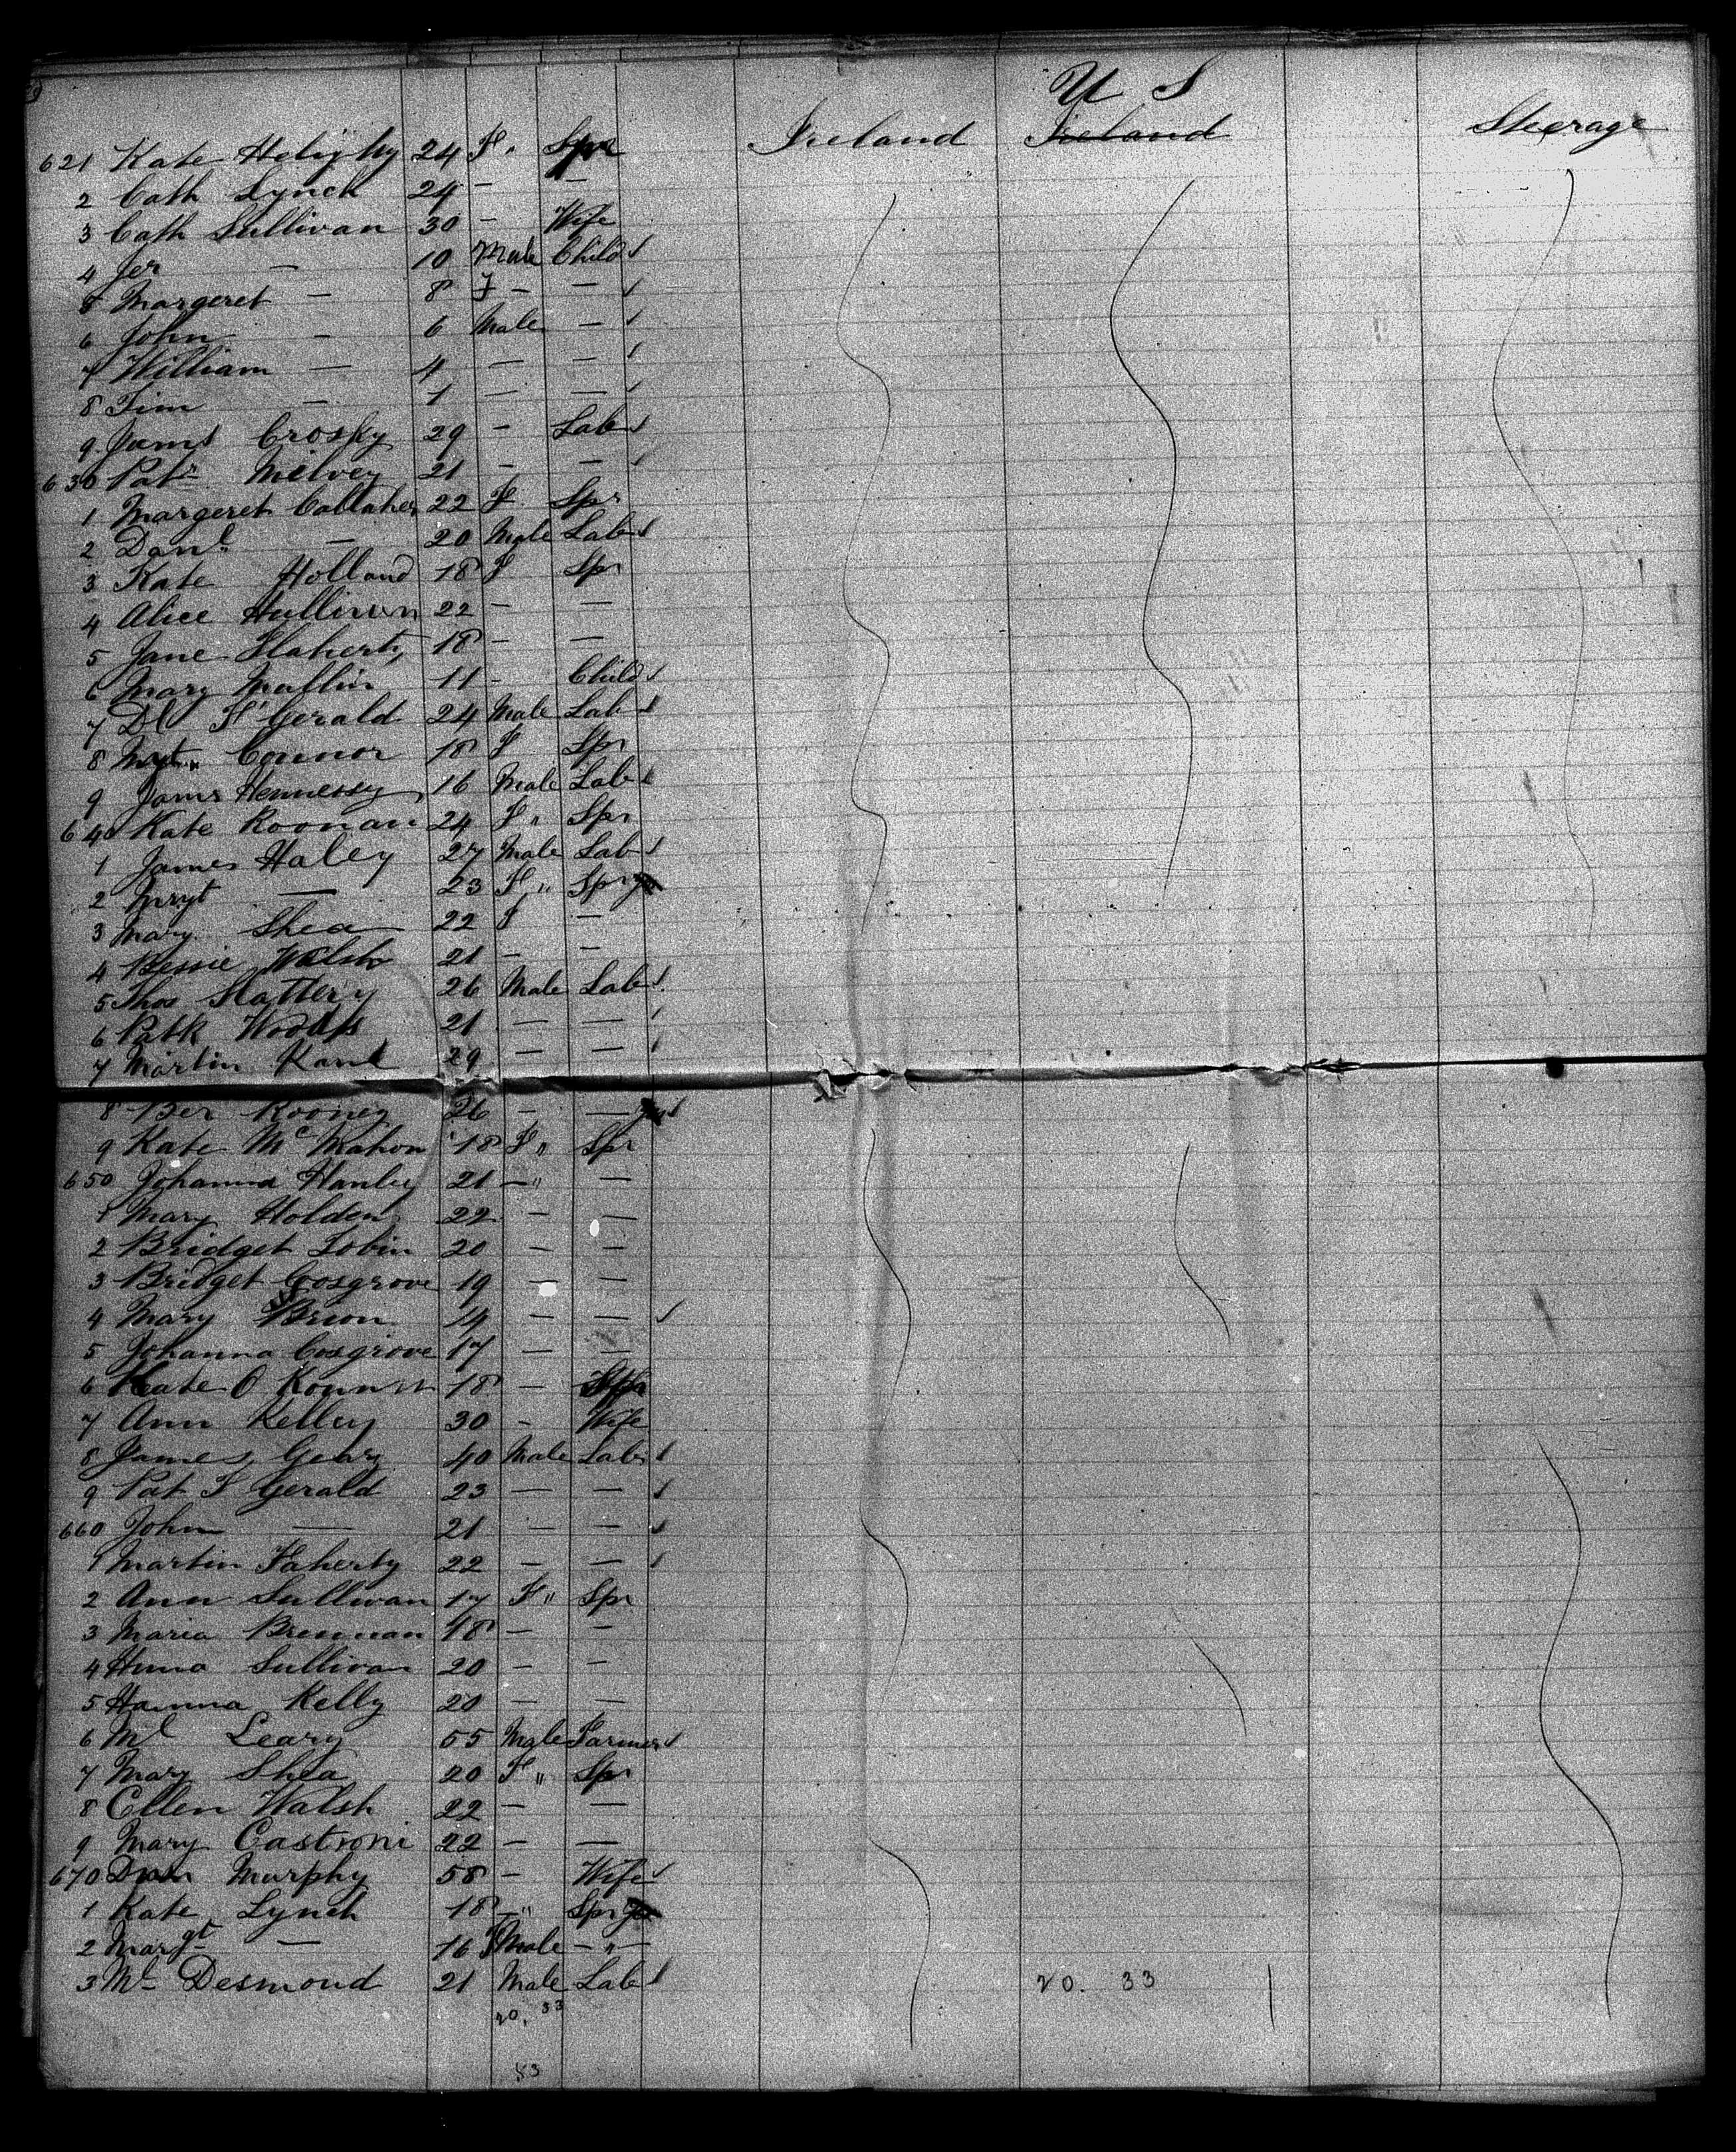 U S
Ireland Ireland Steerage
621 Kate 24 F. Spr
2 Cath Lynch 24 - -
3 Cath Sullivan 30 - Wife
4 Jer - 10 Male Child ✓
5 Margeret - 8 F - - ✓
6 John - 6 Male - ✓
7 William - 4 - - ✓
8 Tim - 1 - - ✓
9 James Crosky 29 - Lab ✓
630 Patr Melvey 21 - - ✓
1 Margeret Callaher 22 F. Spr
2 Danl - 20 Male Lab ✓
3 Kate Holland 18 F Spr
4 Alice 22 - -
5 Jane Flaherty 18 - -
6 Mary 11 - Child ✓
7 Dl F'Gerald 24 Male Lab ✓
8 Connor 18 F Spr
9 James Hennessy 16 Male Lab ✓
640 Kate Roonan 24 F " Spr
1 James Haley 27 Male Lab ✓
2 Mrgt - 23 F. " Spr
3 Mary Shea 22 F -
4 Bessie Walsh 21 - -
5 Thos Slattery 26 Male Lab ✓
6 Patk Woods 21 - - ✓
7 Martin Kane 29 - - ✓
8 Ber Rooney 26 - - ✓
9 Kate McMahon 18 F " Spr
650 Johanna Hanley 21 - " -
1 Mary Holden 22 - -
2 Bridget Tobin 20 - -
3 Bridget Cosgrove 19 - -
4 Mary - - ✓
5 Johanna Cosgrove 17 - -
6 Kate O 18 - Spr
7 Ann Kelley 30 - Wife
8 James Geary 40 Male Lab ✓
9 Pat F Gerald 23 - - ✓
660 John - 21 - - ✓
1 Martin Faherty 22 - - ✓
2 Ann Sullivan 17 F " Spr
3 Maria Brennan 18 - -
4 Sullivan 20 - -
5 Hanna Kelly 20 - -
6 Ml Leary 55 Male Farmer ✓
7 Mary Shea 20 F " Spr
8 Ellen Walsh 22 - -
9 Mary Castroni 22 - -
670 Murphy 58 - Wife ✓
1 Kate Lynch 18 - " Spr
2 Margt - 16 F - " -
3 Ml Desmond 21 Male Lab ✓ 20. 33
20. 33
53